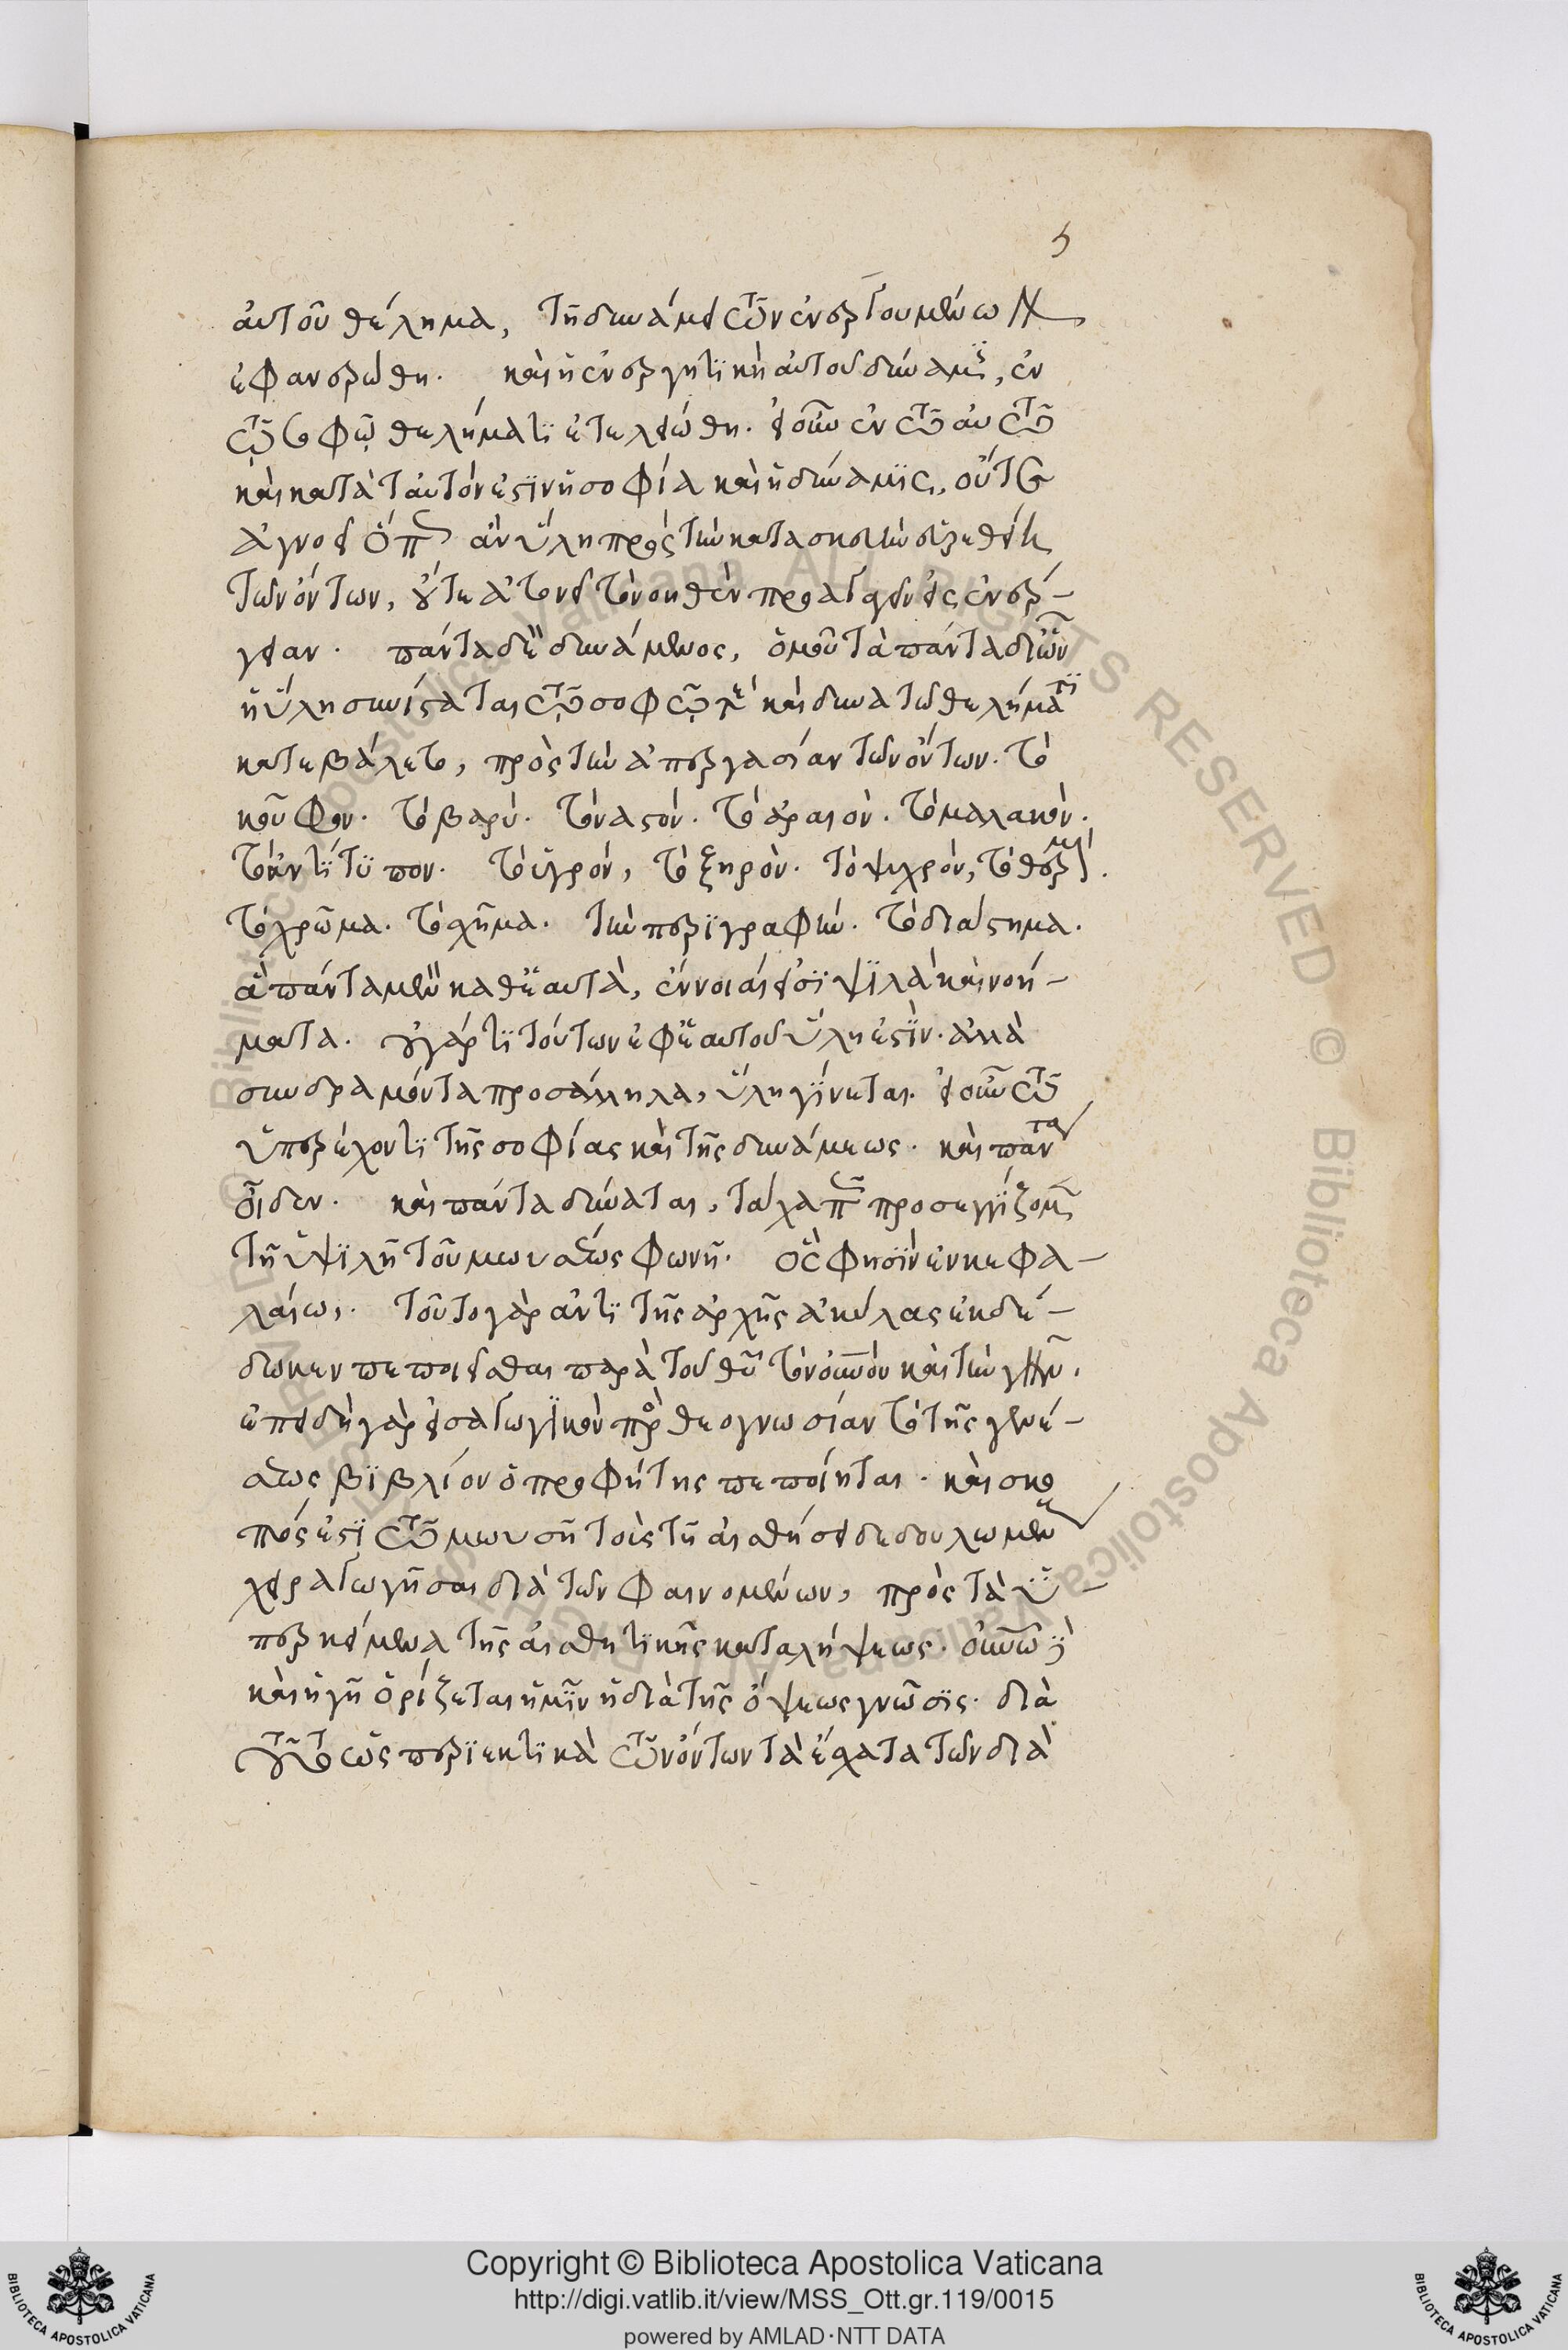 5
αὐτοῦ θέλημα, τῆ δυνάμει τῶν ἐνεργουμένων
ἐφανερώθη. καὶ ἡ ἐνεργητικὴ αὐτοῦ δύναμις, ἐν
τῶ σοφῶ θελήματι ἐτελειώθη. εἰ οὖν ἐν τῶ αὐτῶ
καὶ κατὰ ταυτόν ἐστιν ἡ σοφία καὶ ἡ δύναμις, οὔτε
ἀγνοεῖ ὅπως ἂν ὕλη πρὸς τὴν κατασκευὴν εὑρεθείη
τῶν ὄντων, οὔτε ἀτονεῖ τὸ νοηθὲν προαγαγεῖν εἰς ἐνέρ-
γειαν. πάντα δὲ δυνάμενος, ὁμοῦ τὰ πάντα δι' ὧν
ἡ ὕλη συνίσταται τῶ σοφῶ τε καὶ δυνατῶ θελήματι
κατεβάλετο, πρὸς τὴν ἀπεργασίαν τῶν ὄντων. τὸ
κοῦφον. τὸ βαρύ. τὸ ναστόν. τὸ ἀραιόν. τὸ μαλακόν.
τὸ ἀντίτυπον. τὸ ὑγρόν, τὸ ξηρόν. τὸ ψυχρόν, τὸ θερμόν.
τὸ χρῶμα. τὸ σχῆμα. τὴν περιγραφήν. τὸ διάστημα.
ἃ πάντα μὲν καθ' ἑαυτὰ, ἔννοιαί εἰσι ψιλὰ καὶ νοή-
ματα. οὐ γάρ τι τούτων ἐφ' ἑαυτοῦ ὕλη ἐστίν. ἀλλὰ
συνδραμόντα προς άλληλα, ὕλη γίνεται. εἰ οὖν τῶ
ὑπερέχοντι τῆς σοφίας καὶ τῆς δυνάμεως. καὶ πάντα
οἶδεν. καὶ πάντα δύναται, τάχα πως προσεγγίζομεν
τῆ ὑψιλῆ τοῦ μωυσέως φωνῆ. ὅς φησιν ἐν κεφα-
λαίω. τοῦτο γὰρ ἀντὶ τῆς ἀρχῆς ἀκύλας ἐκδέ-
δωκεν πεποιεῖσθαι παρὰ τοῦ θυ τὸν οὐνὸν καὶ τὴν γῆν.
ἐπειδὴ γὰρ εἰσαγωγικὸν πρὸς θεογνωσίαν τὸ τῆς γενέ-
σεως βιβλίον ὁ προφήτης πεποίηται. καὶ σκο
πός ἐστι τῶ μωυσῆ τοὺς τῆ αἰσθήσει δεδουλωμένους
χειραγωγῆσαι διὰ τῶν φαινομένων, πρὸς τὰ ὑ-
περκείμενα τῆς αἰσθητικῆς καταλήψεως. οὐνῶ δὲ
καὶ ἡ γῆ ὁρίζεται ἡμῖν ἡ διὰ τῆς ὄψεως γνῶσις. διὰ
τοῦτο ὡς περιεκτικὰ τῶν ὄντων τὰ ἔσχατα τῶν διὰ
© Biblioteca Apostolica Vaticana ALL RIGHTS RESERVED
Copyright © Biblioteca Apostolica Vaticana
http://digi.vatlib.it/view/MSS_Ott.gr.119/0015
powered by AMLAD·NTT DATA
BIBLIOTECA APOSTOLICA VATICANA
BIBLIOTECA APOSTOLICA VATICANA